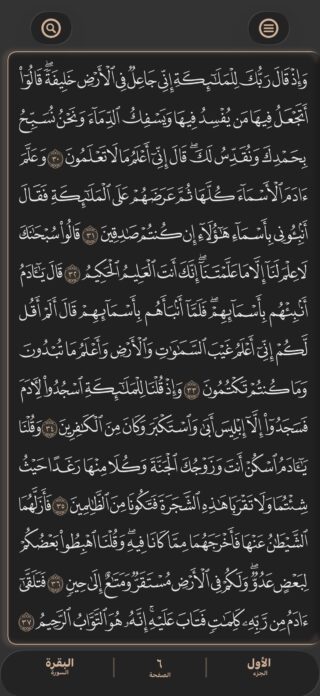 وَإِذْ قَالَ رَبُّكَ لِلْمَلَٰٓئِكَةِ إِنِّى جَاعِلٌ فِى ٱلْأَرْضِ خَلِيفَةً ۖ قَالُوٓا۟
أَتَجْعَلُ فِيهَا مَن يُفْسِدُ فِيهَا وَيَسْفِكُ ٱلدِّمَآءَ وَنَحْنُ نُسَبِّحُ
بِحَمْدِكَ وَنُقَدِّسُ لَكَ ۖ قَالَ إِنِّىٓ أَعْلَمُ مَا لَا تَعْلَمُونَ ٣٠ وَعَلَّمَ
ءَادَمَ ٱلْأَسْمَآءَ كُلَّهَا ثُمَّ عَرَضَهُمْ عَلَى ٱلْمَلَٰٓئِكَةِ فَقَالَ
أَنۢبِـُٔونِى بِأَسْمَآءِ هَٰٓؤُلَآءِ إِن كُنتُمْ صَٰدِقِينَ ٣١ قَالُوا۟ سُبْحَٰنَكَ
لَا عِلْمَ لَنَآ إِلَّا مَا عَلَّمْتَنَآ ۖ إِنَّكَ أَنتَ ٱلْعَلِيمُ ٱلْحَكِيمُ ٣٢ قَالَ يَٰٓـَٔادَمُ
أَنۢبِئْهُم بِأَسْمَآئِهِمْ ۖ فَلَمَّآ أَنۢبَأَهُم بِأَسْمَآئِهِمْ قَالَ أَلَمْ أَقُل
لَّكُمْ إِنِّىٓ أَعْلَمُ غَيْبَ ٱلسَّمَٰوَٰتِ وَٱلْأَرْضِ وَأَعْلَمُ مَا تُبْدُونَ
وَمَا كُنتُمْ تَكْتُمُونَ ٣٣ وَإِذْ قُلْنَا لِلْمَلَٰٓئِكَةِ ٱسْجُدُوا۟ لِءَادَمَ
فَسَجَدُوٓا۟ إِلَّآ إِبْلِيسَ أَبَىٰ وَٱسْتَكْبَرَ وَكَانَ مِنَ ٱلْكَٰفِرِينَ ٣٤ وَقُلْنَا
يَٰٓـَٔادَمُ ٱسْكُنْ أَنتَ وَزَوْجُكَ ٱلْجَنَّةَ وَكُلَا مِنْهَا رَغَدًا حَيْثُ
شِئْتُمَا وَلَا تَقْرَبَا هَٰذِهِ ٱلشَّجَرَةَ فَتَكُونَا مِنَ ٱلظَّٰلِمِينَ ٣٥ فَأَزَلَّهُمَا
ٱلشَّيْطَٰنُ عَنْهَا فَأَخْرَجَهُمَا مِمَّا كَانَا فِيهِ ۖ وَقُلْنَا ٱهْبِطُوا۟ بَعْضُكُمْ
لِبَعْضٍ عَدُوٌّ ۖ وَلَكُمْ فِى ٱلْأَرْضِ مُسْتَقَرٌّ وَمَتَٰعٌ إِلَىٰ حِينٍ ٣٦ فَتَلَقَّىٰٓ
ءَادَمُ مِن رَّبِّهِۦ كَلِمَٰتٍ فَتَابَ عَلَيْهِ ۚ إِنَّهُۥ هُوَ ٱلتَّوَّابُ ٱلرَّحِيمُ ٣٧
الأول ٦ البقرة
الجزء الصفحة السورة